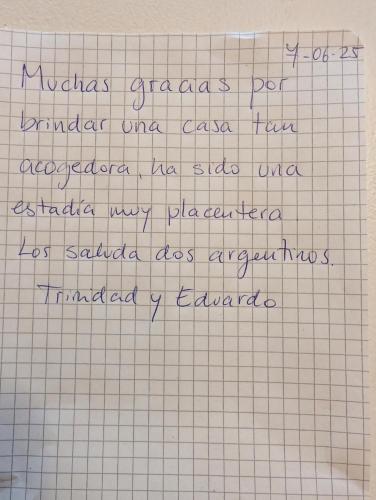 7-06-25
Muchas gracias por
brindar una casa tan
acogedora, ha sido una
estadía muy placentera.
Los saluda dos argentinos.
Trinidad y Eduardo